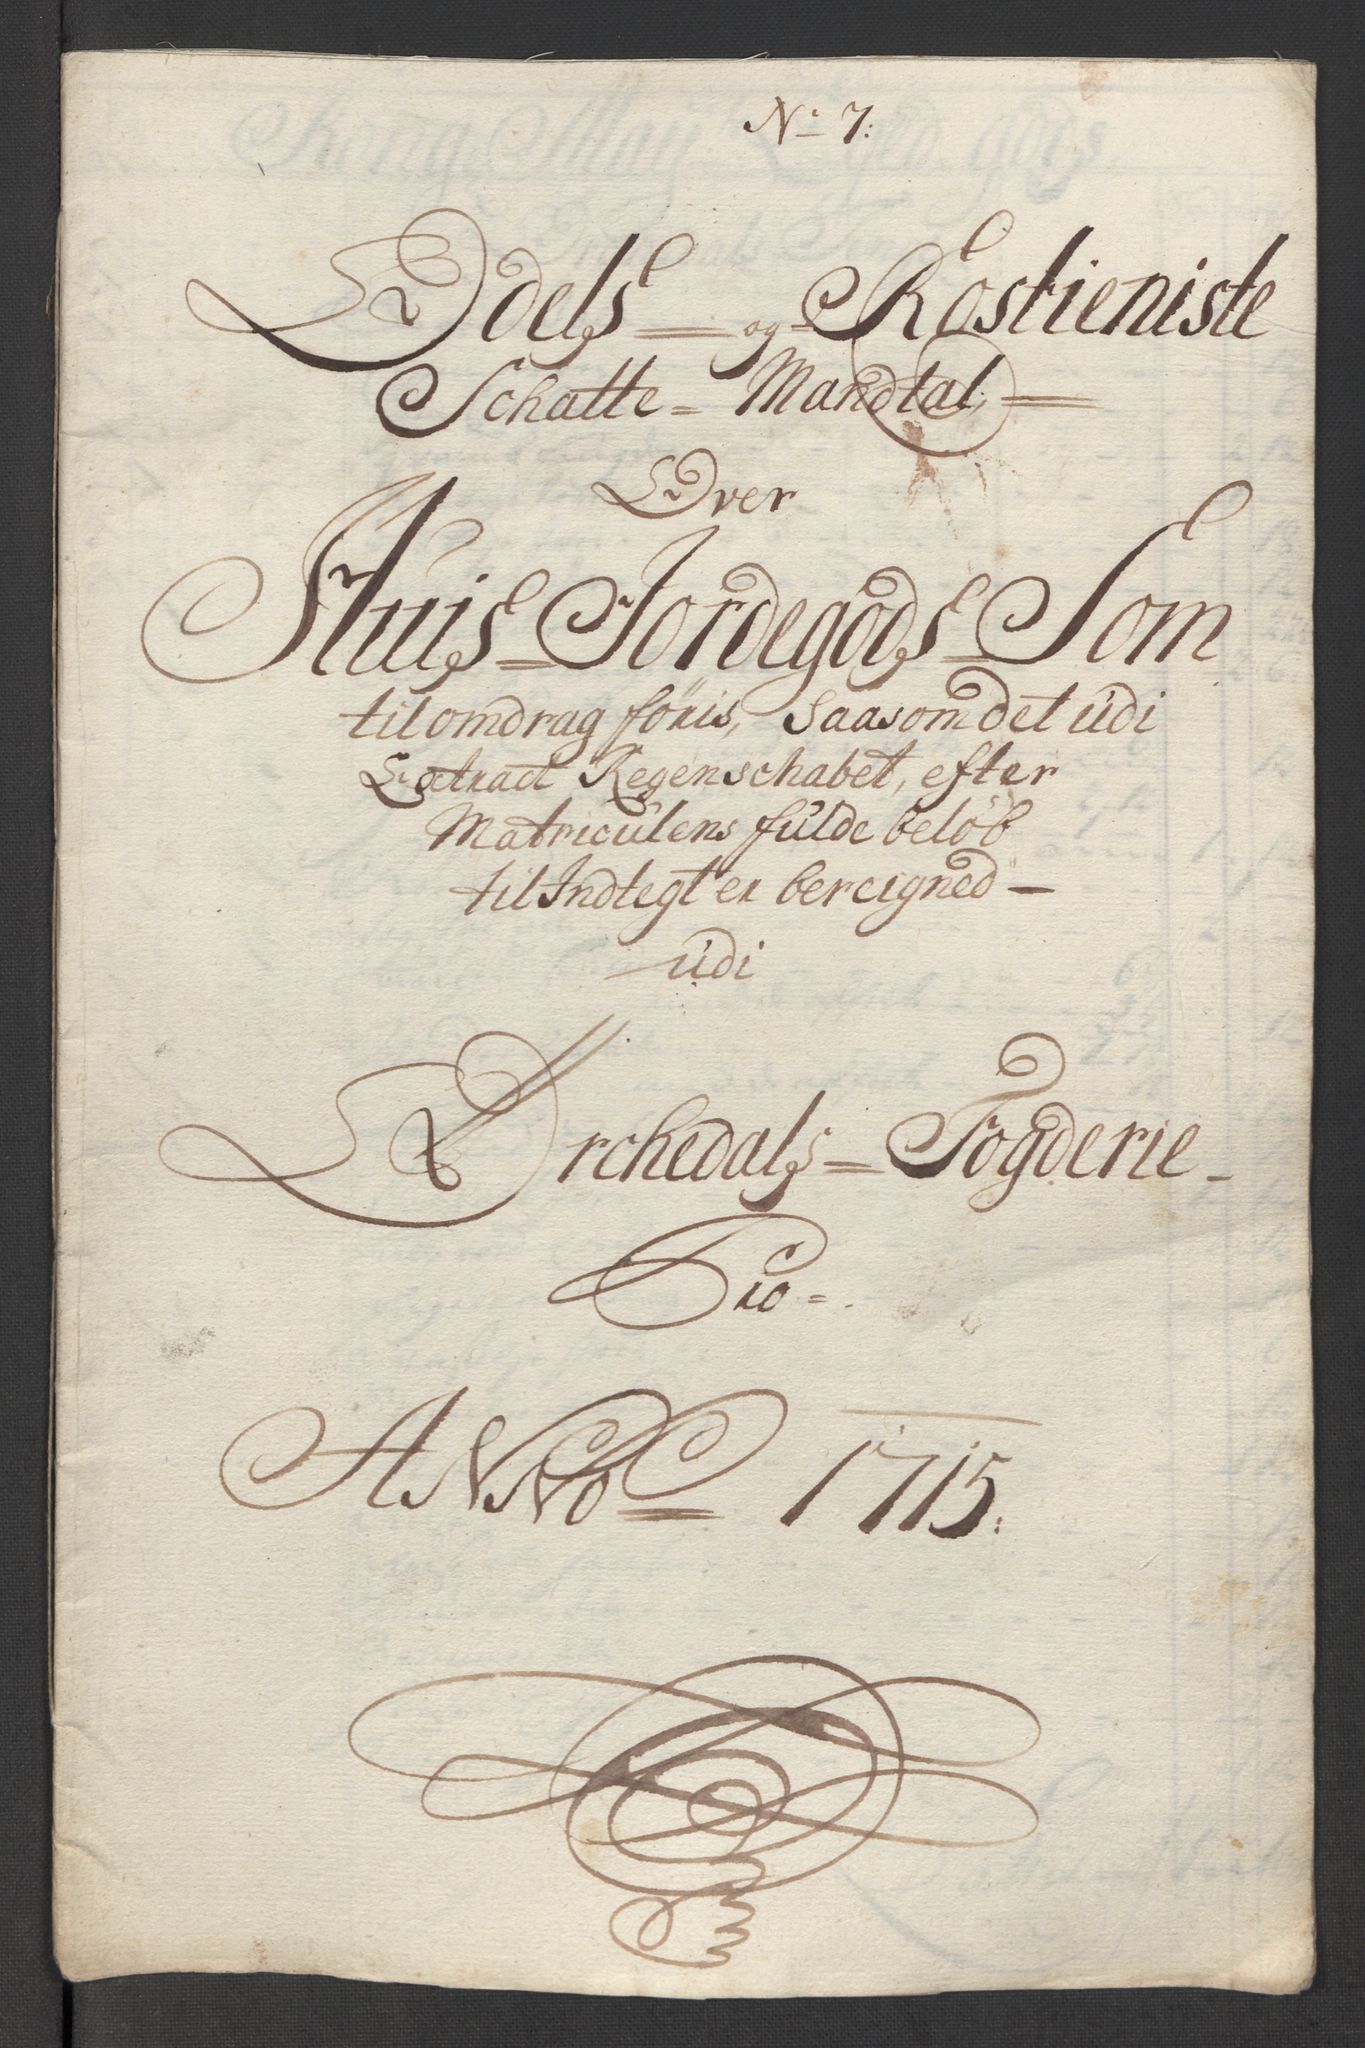 No 7:
Odels og Rostieniste
Schatte Mandtal
Over
Huis Jordegods Som
til omdrag föris, Saasom det udi
Extract Regenschabet, efter
Matriculens fulde belöb
til Indtegt er bereigned
udi
Orchedals Fogderie
Pro
ANNO 1715: